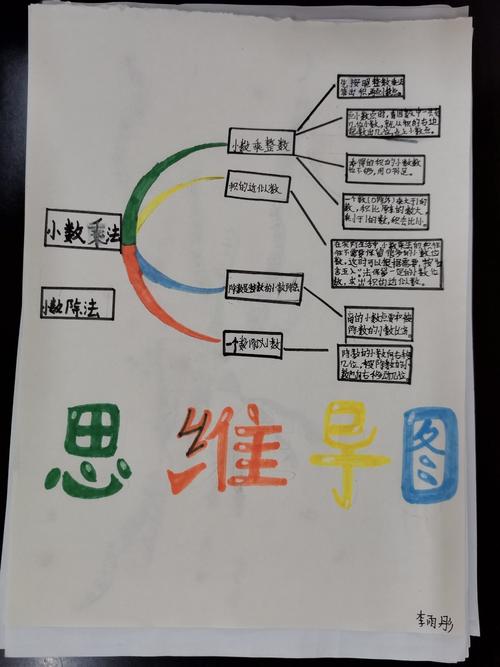 先按照整数乘法
算出积,再点小数点。
点小数点时,看因数中一共有
几位小数,就从积的右边
起数出几位,点上小数点。
小数乘整数
乘得的积的小数数
位不够,用0补足。
一个数(0除外)乘大于1的
数,积比原来的数大。
乘小于1的数,积去比小
积的近似数
小数乘法
数,这时可以根据需要,按"四
舍五入"法保留一定的小数位
数,求出积的近似数。
小数除法
除数是整数的小数除法
商的小数点要和被
除数的小数点对齐
一个数除以小数
除数的小数点向右移
几位,被除数的小
数点也向右移动几位。
思维导图
李雨彤